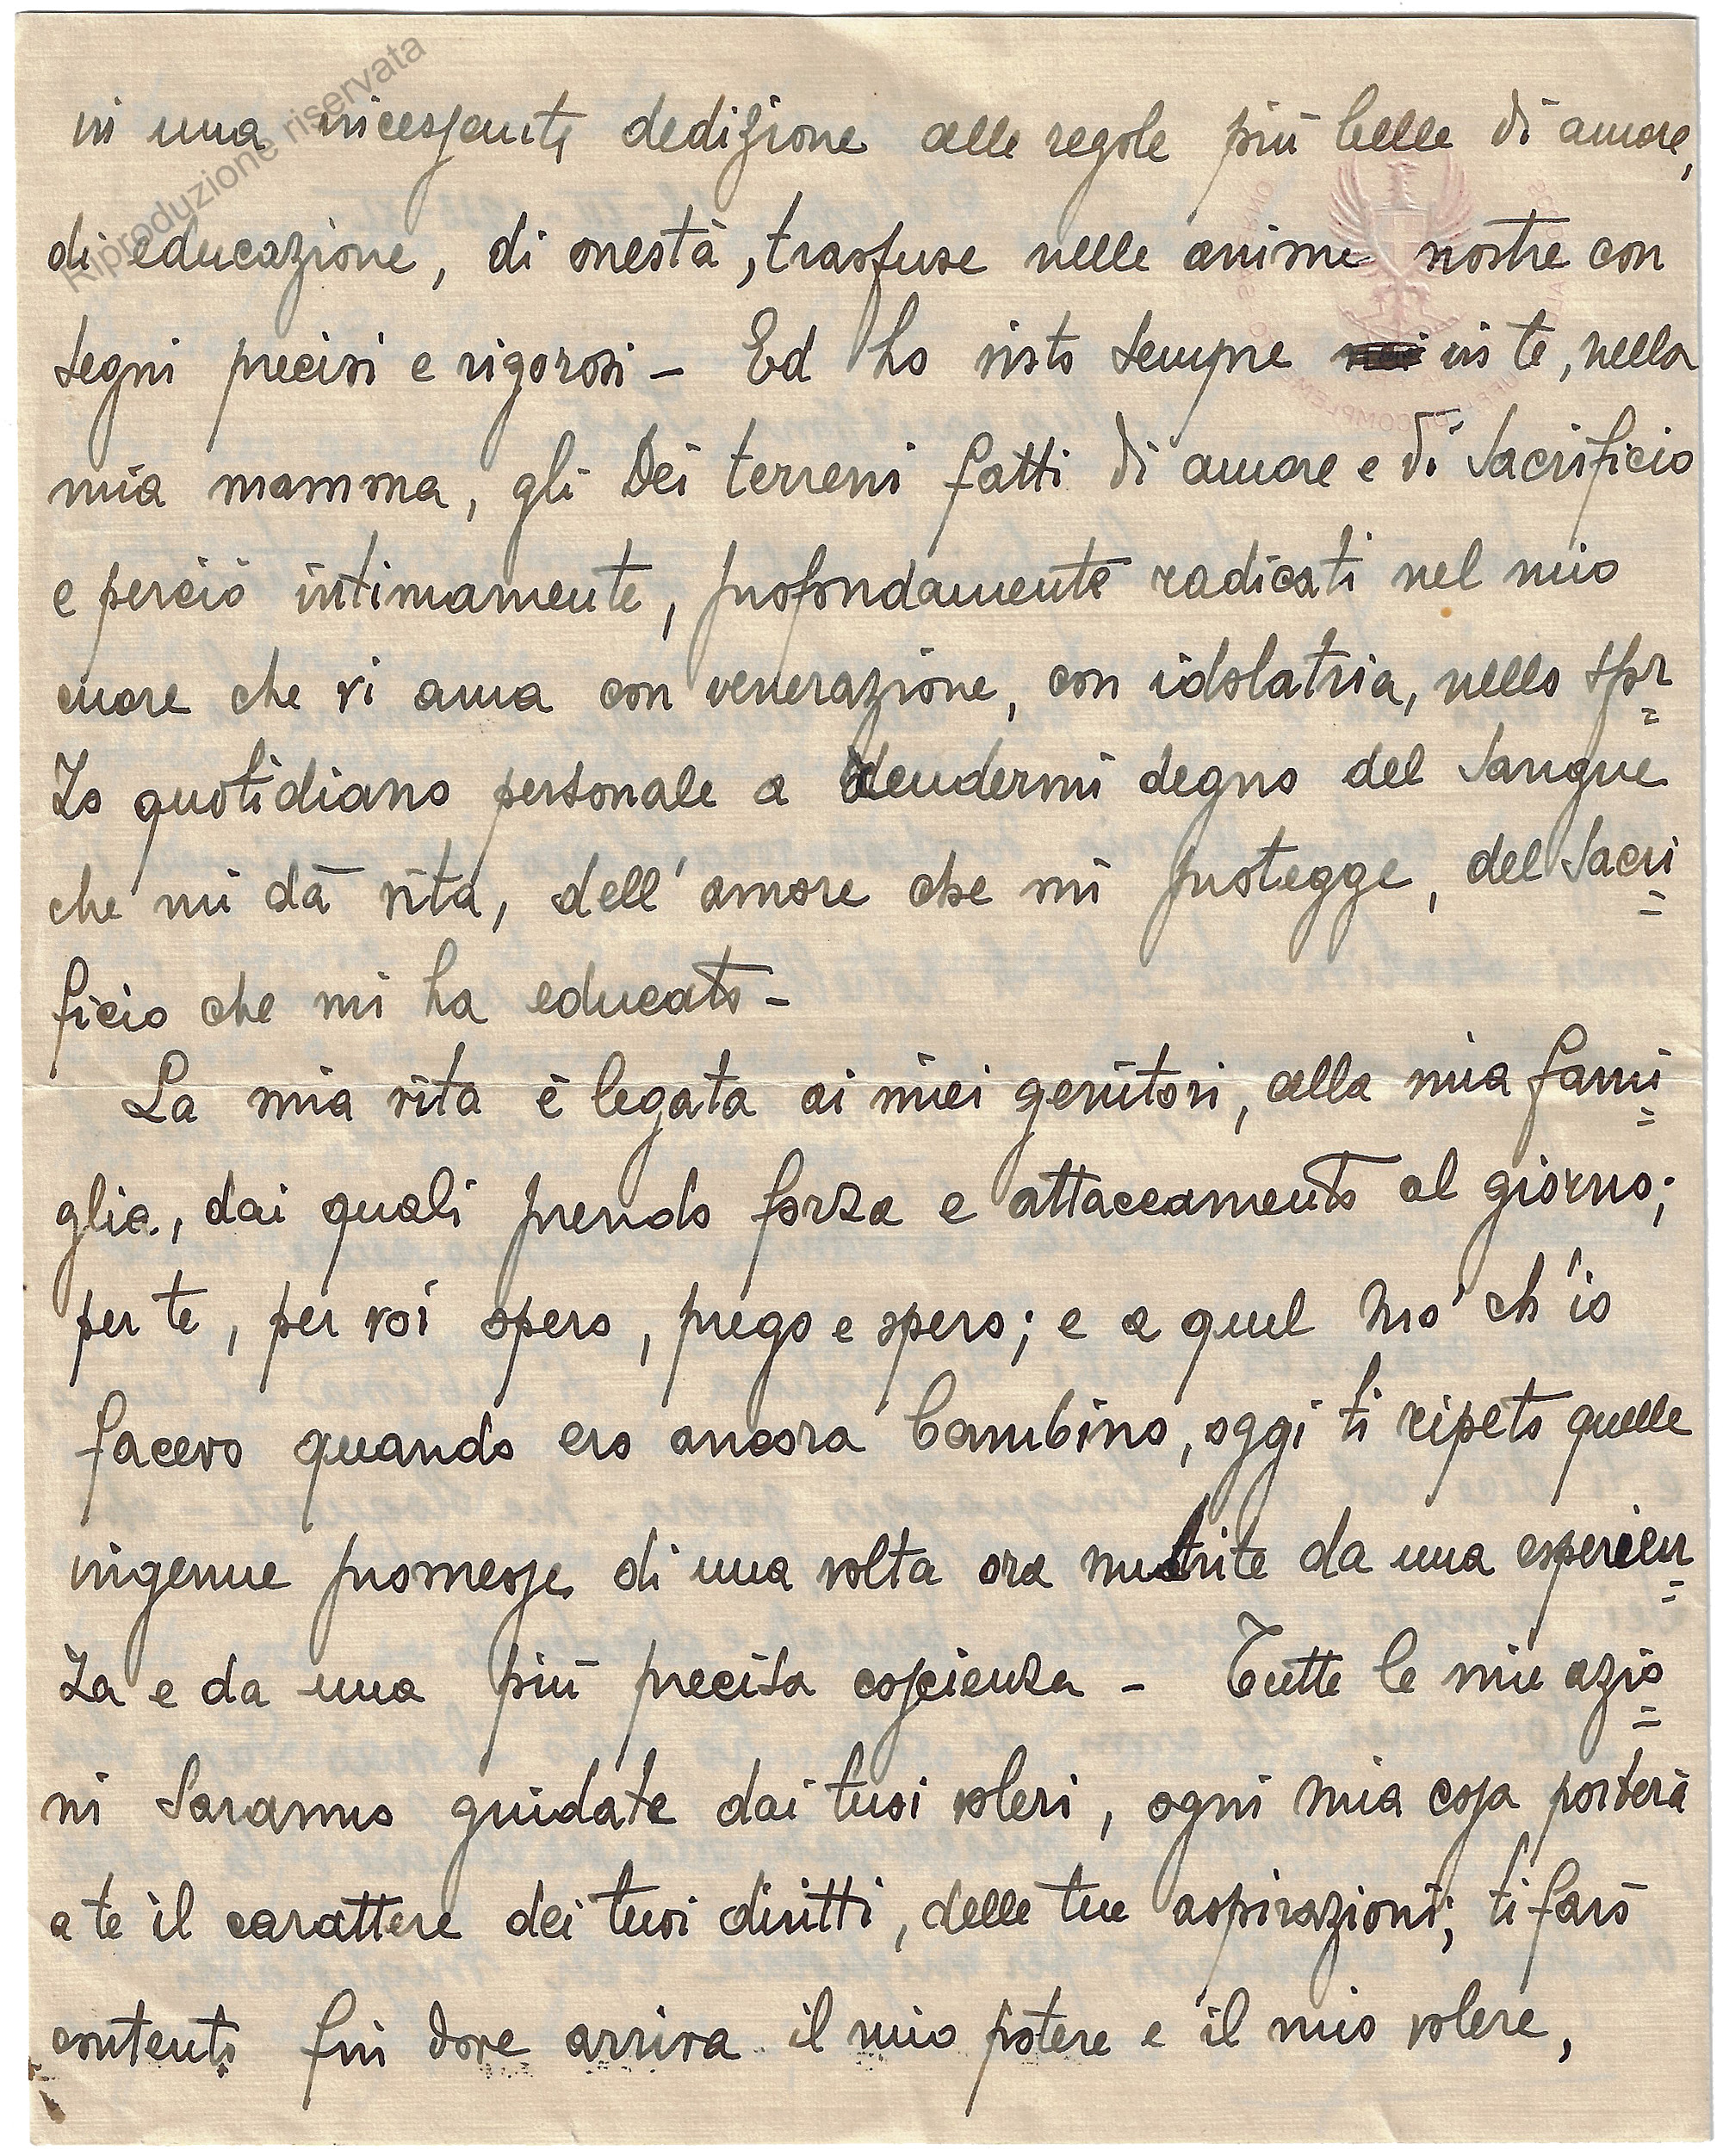 Riproduzione riservata
in una incessante dedizione alle regole più belle di amore,
di educazione, di onestà, trasfuse nelle anime nostre con
segni precisi e rigorosi – Ed ho visto sempre in te, nella
mia mamma, gli Dei terreni fatti di amore e di sacrificio
e perciò intimamente, profondamente radicati nel mio
cuore che vi ama con venerazione, con idolatria, nello sfor=
zo quotidiano personale a rendermi degno del sangue
che mi dà vita, dell'amore che mi protegge, del sacri=
ficio che mi ha educato –
La mia vita è legata ai miei genitori, alla mia fami=
glia, dai quali prendo forza e attaccamento al giorno;
per te, per voi opero, prego e spero; e a quel mo' ch'io
facevo quando ero ancora bambino, oggi ti ripeto quelle
ingenue promesse di una volta ora nutrite da una esperien=
za e da una più precisa coscienza – Tutte le mie azio=
ni saranno guidate dai tuoi voleri, ogni mia cosa porterà
a te il carattere dei tuoi diritti, delle tue aspirazioni; ti farò
contento fin dove arriva il mio potere e il mio volere,